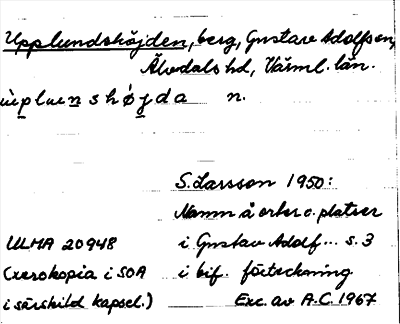 Upplundshöjden, berg, Gustav Adolfs sn,
Älvdals hd, Värml. län.
ùplunshǿjda n.
S. Larsson 1950:
Namn å orter o. platser
ULMA 20948 i Gustav Adolf... s. 3
(xerokopia i SOA i bif. förteckning
i särskild kapsel.) Exc. av A.C. 1967